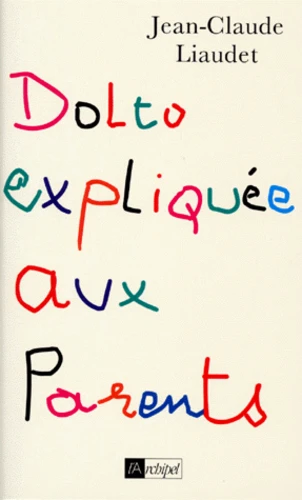 Jean-Claude
Liaudet
Dolto
expliquée
aux
Parents
l'Archipel